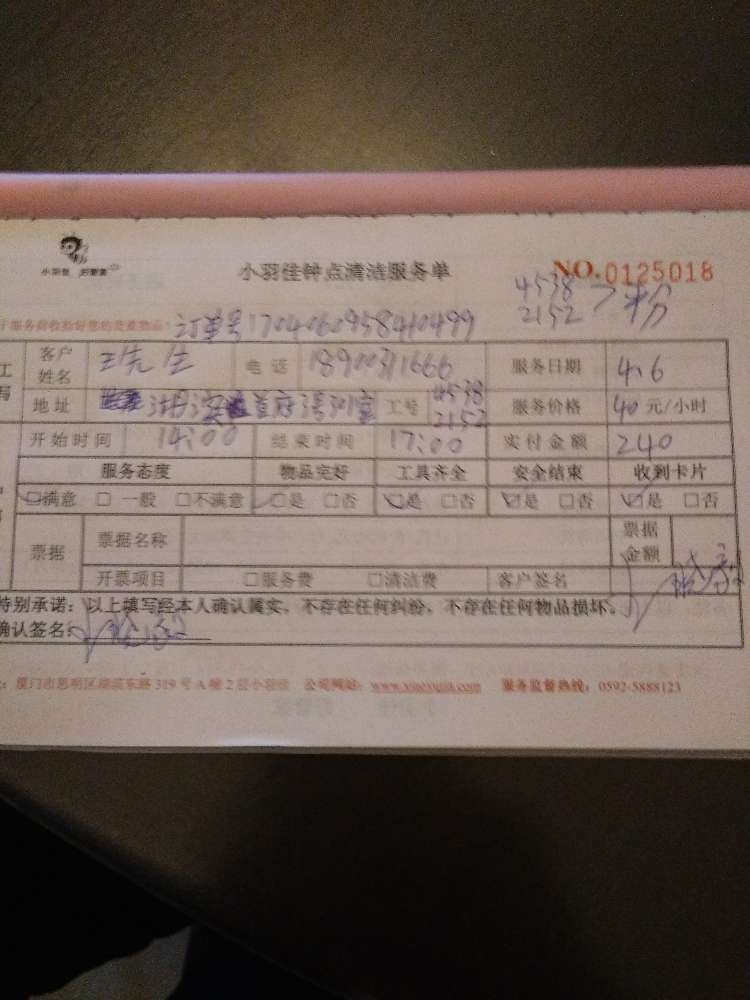 小羽佳 好管家
小羽佳钟点清洁服务单
NO.0125018
4538
2152
订单号1704060958410499
客户姓名 王先生 电话 18900311666 服务日期 4.6
地址 工号 4538 2152 服务价格 40元/小时
开始时间 14:00 结束时间 17:00 实付金额 240
服务态度 物品完好 工具齐全 安全结束 收到卡片
☑满意 □一般 □不满意 ☑是 □否 ☑是 □否 ☑是 □否 ☑是 □否
票据 票据名称 票据金额
开票项目 □服务费 □清洁费 客户签名
特别承诺：以上填写经本人确认属实，不存在任何纠纷，不存在任何物品损坏。
确认签名：
厦门市思明区湖滨东路319号A幢2层小羽佳 公司网站：www.xiaoyujia.com 服务监督热线：0592-5888123